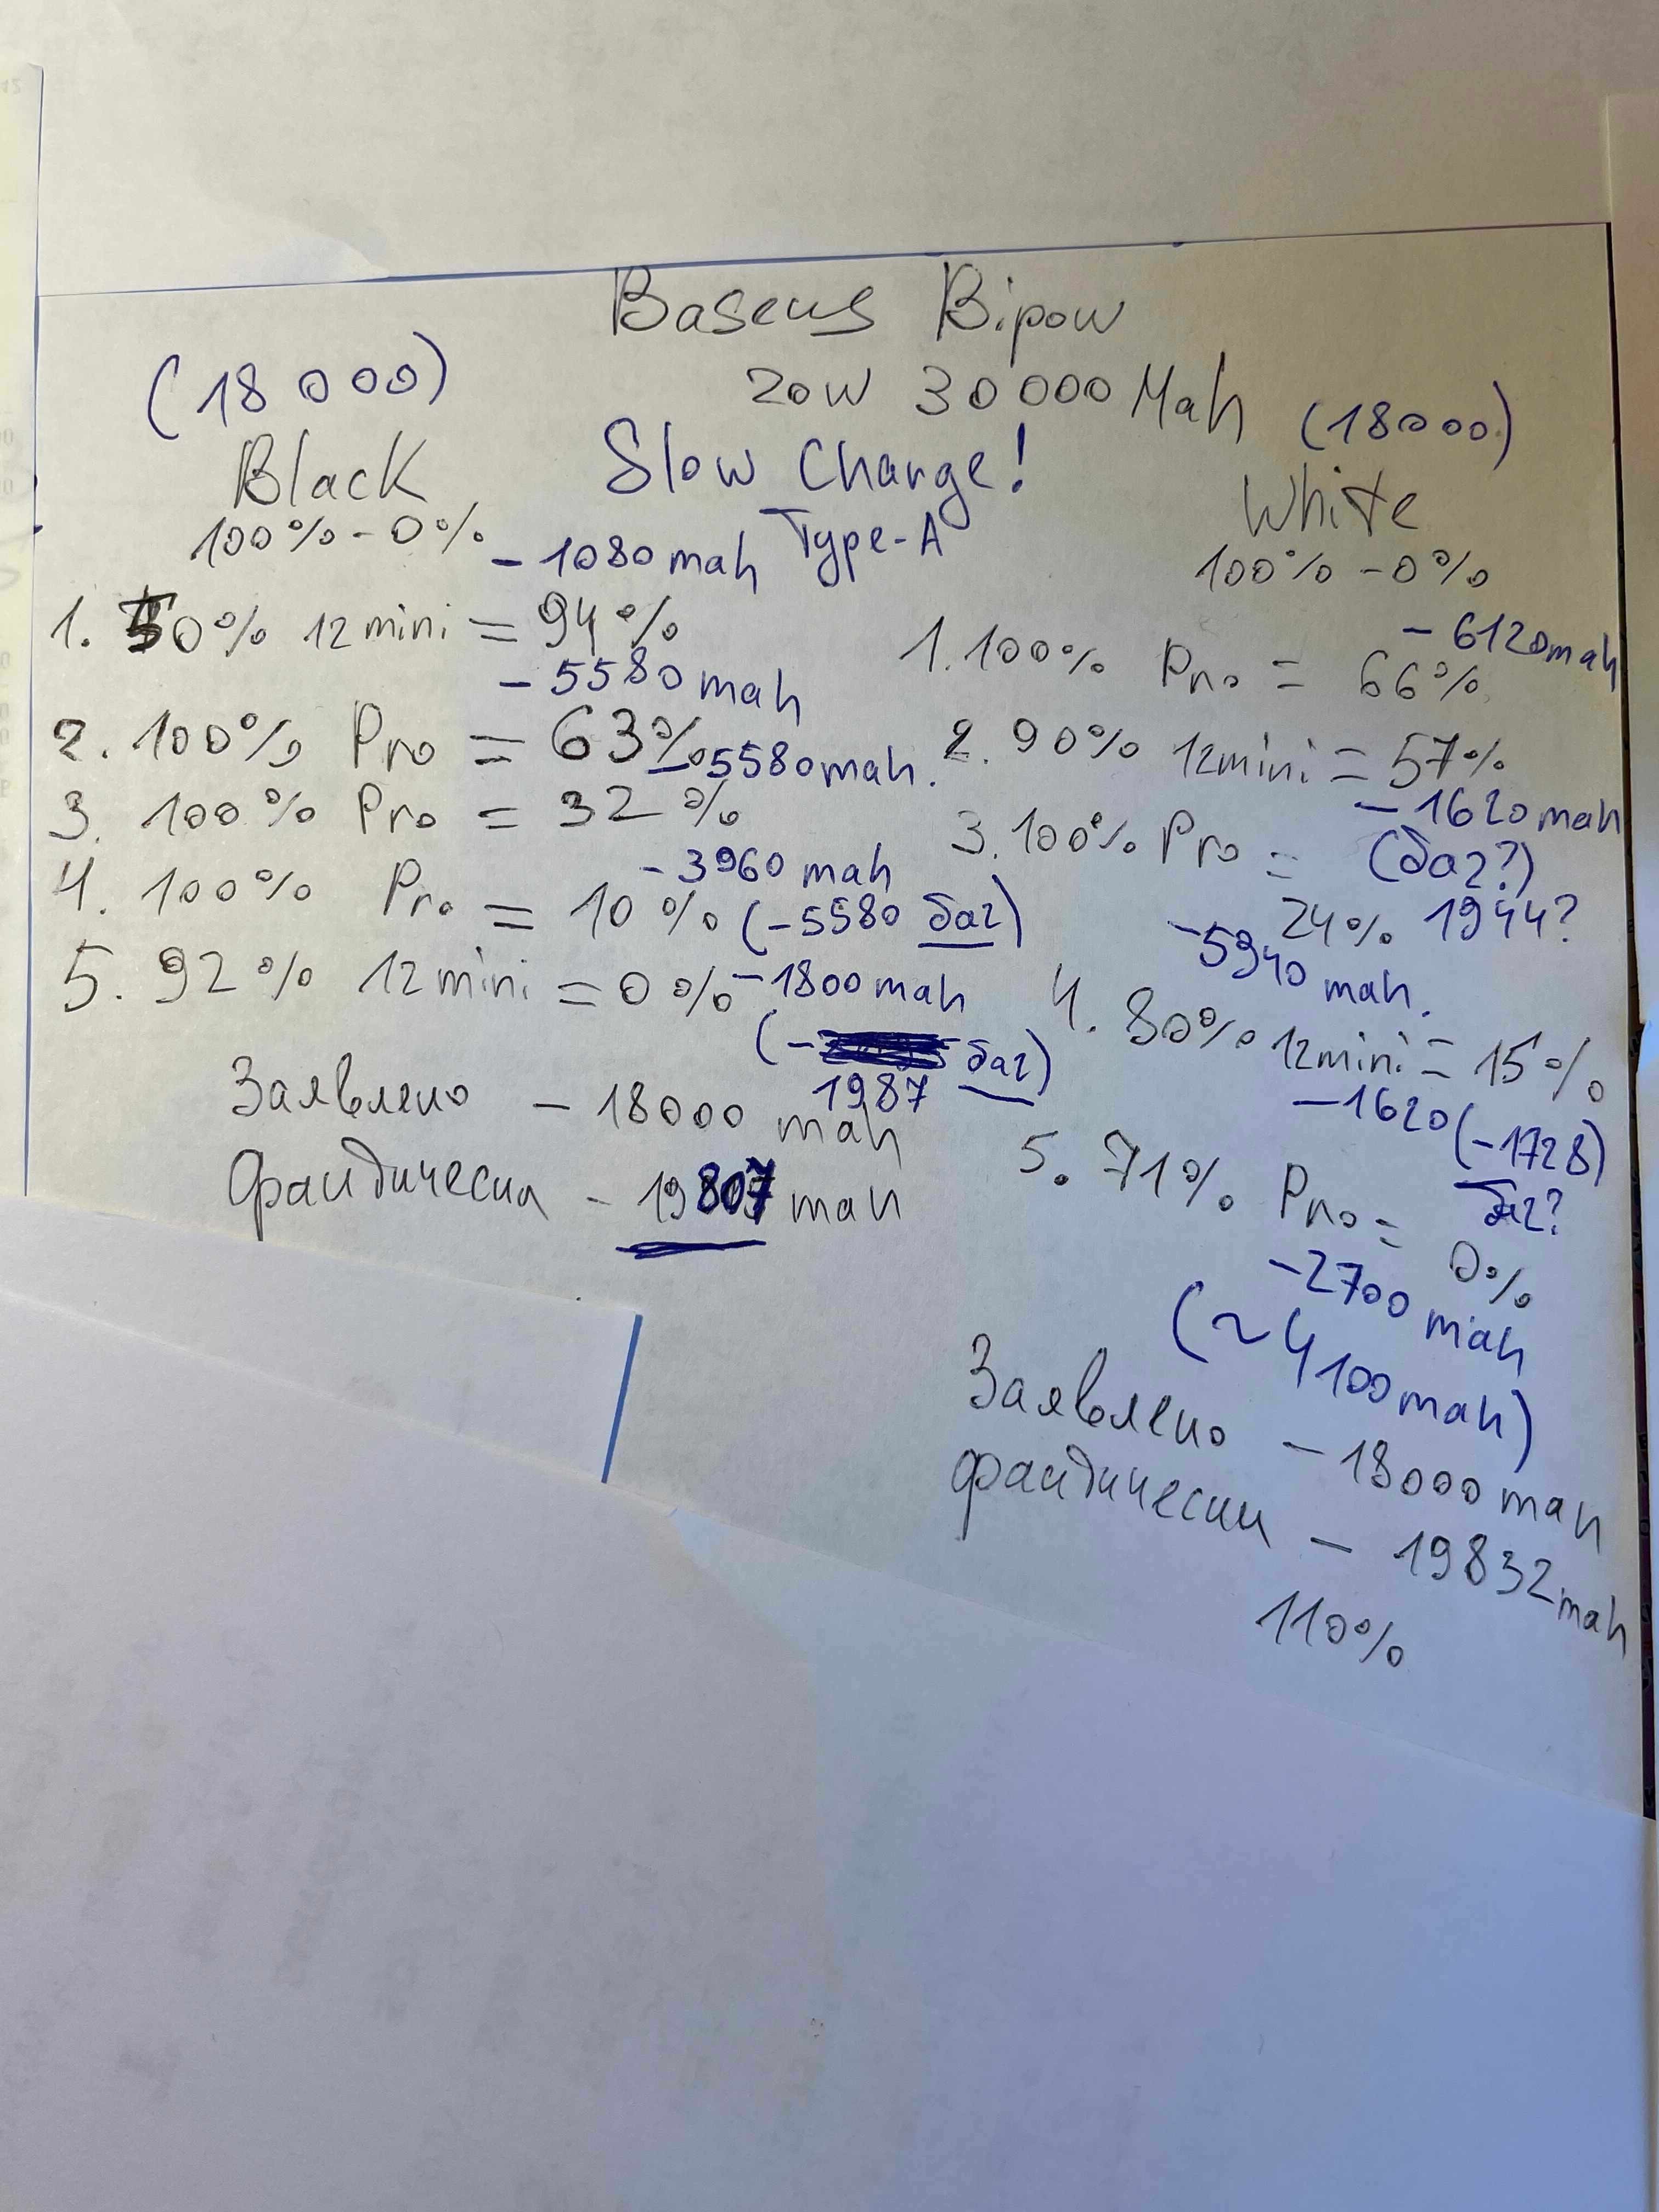 Baseus Bipow
20W 30000 Mah
Slow Charge!
Type-A
(18000)
Black
100% - 0%
- 1080 mah
1. 50% 12 mini = 94%
- 5580 mah
2. 100% Pro = 63%
- 5580 mah.
3. 100% Pro = 32%
- 3960 mah
4. 100% Pro = 10% (-5580 баг)
5. 92% 12 mini = 0% - 1800 mah
(- баг)
1987
Заявлено - 18000 mah
Фактически - 19807 mah
(18000)
White
100% - 0%
- 6120 mah
1. 100% Pro = 66%
2. 90% 12 mini = 57%
- 1620 mah
3. 100% Pro = (баг?)
24% 1944?
- 5940 mah.
4. 80% 12 mini = 15%
- 1620 (-1728)
баг?
5. 71% Pro = 0%
- 2700 mah
(~ 4100 mah)
Заявлено - 18000 mah
Фактически - 19832 mah
110%